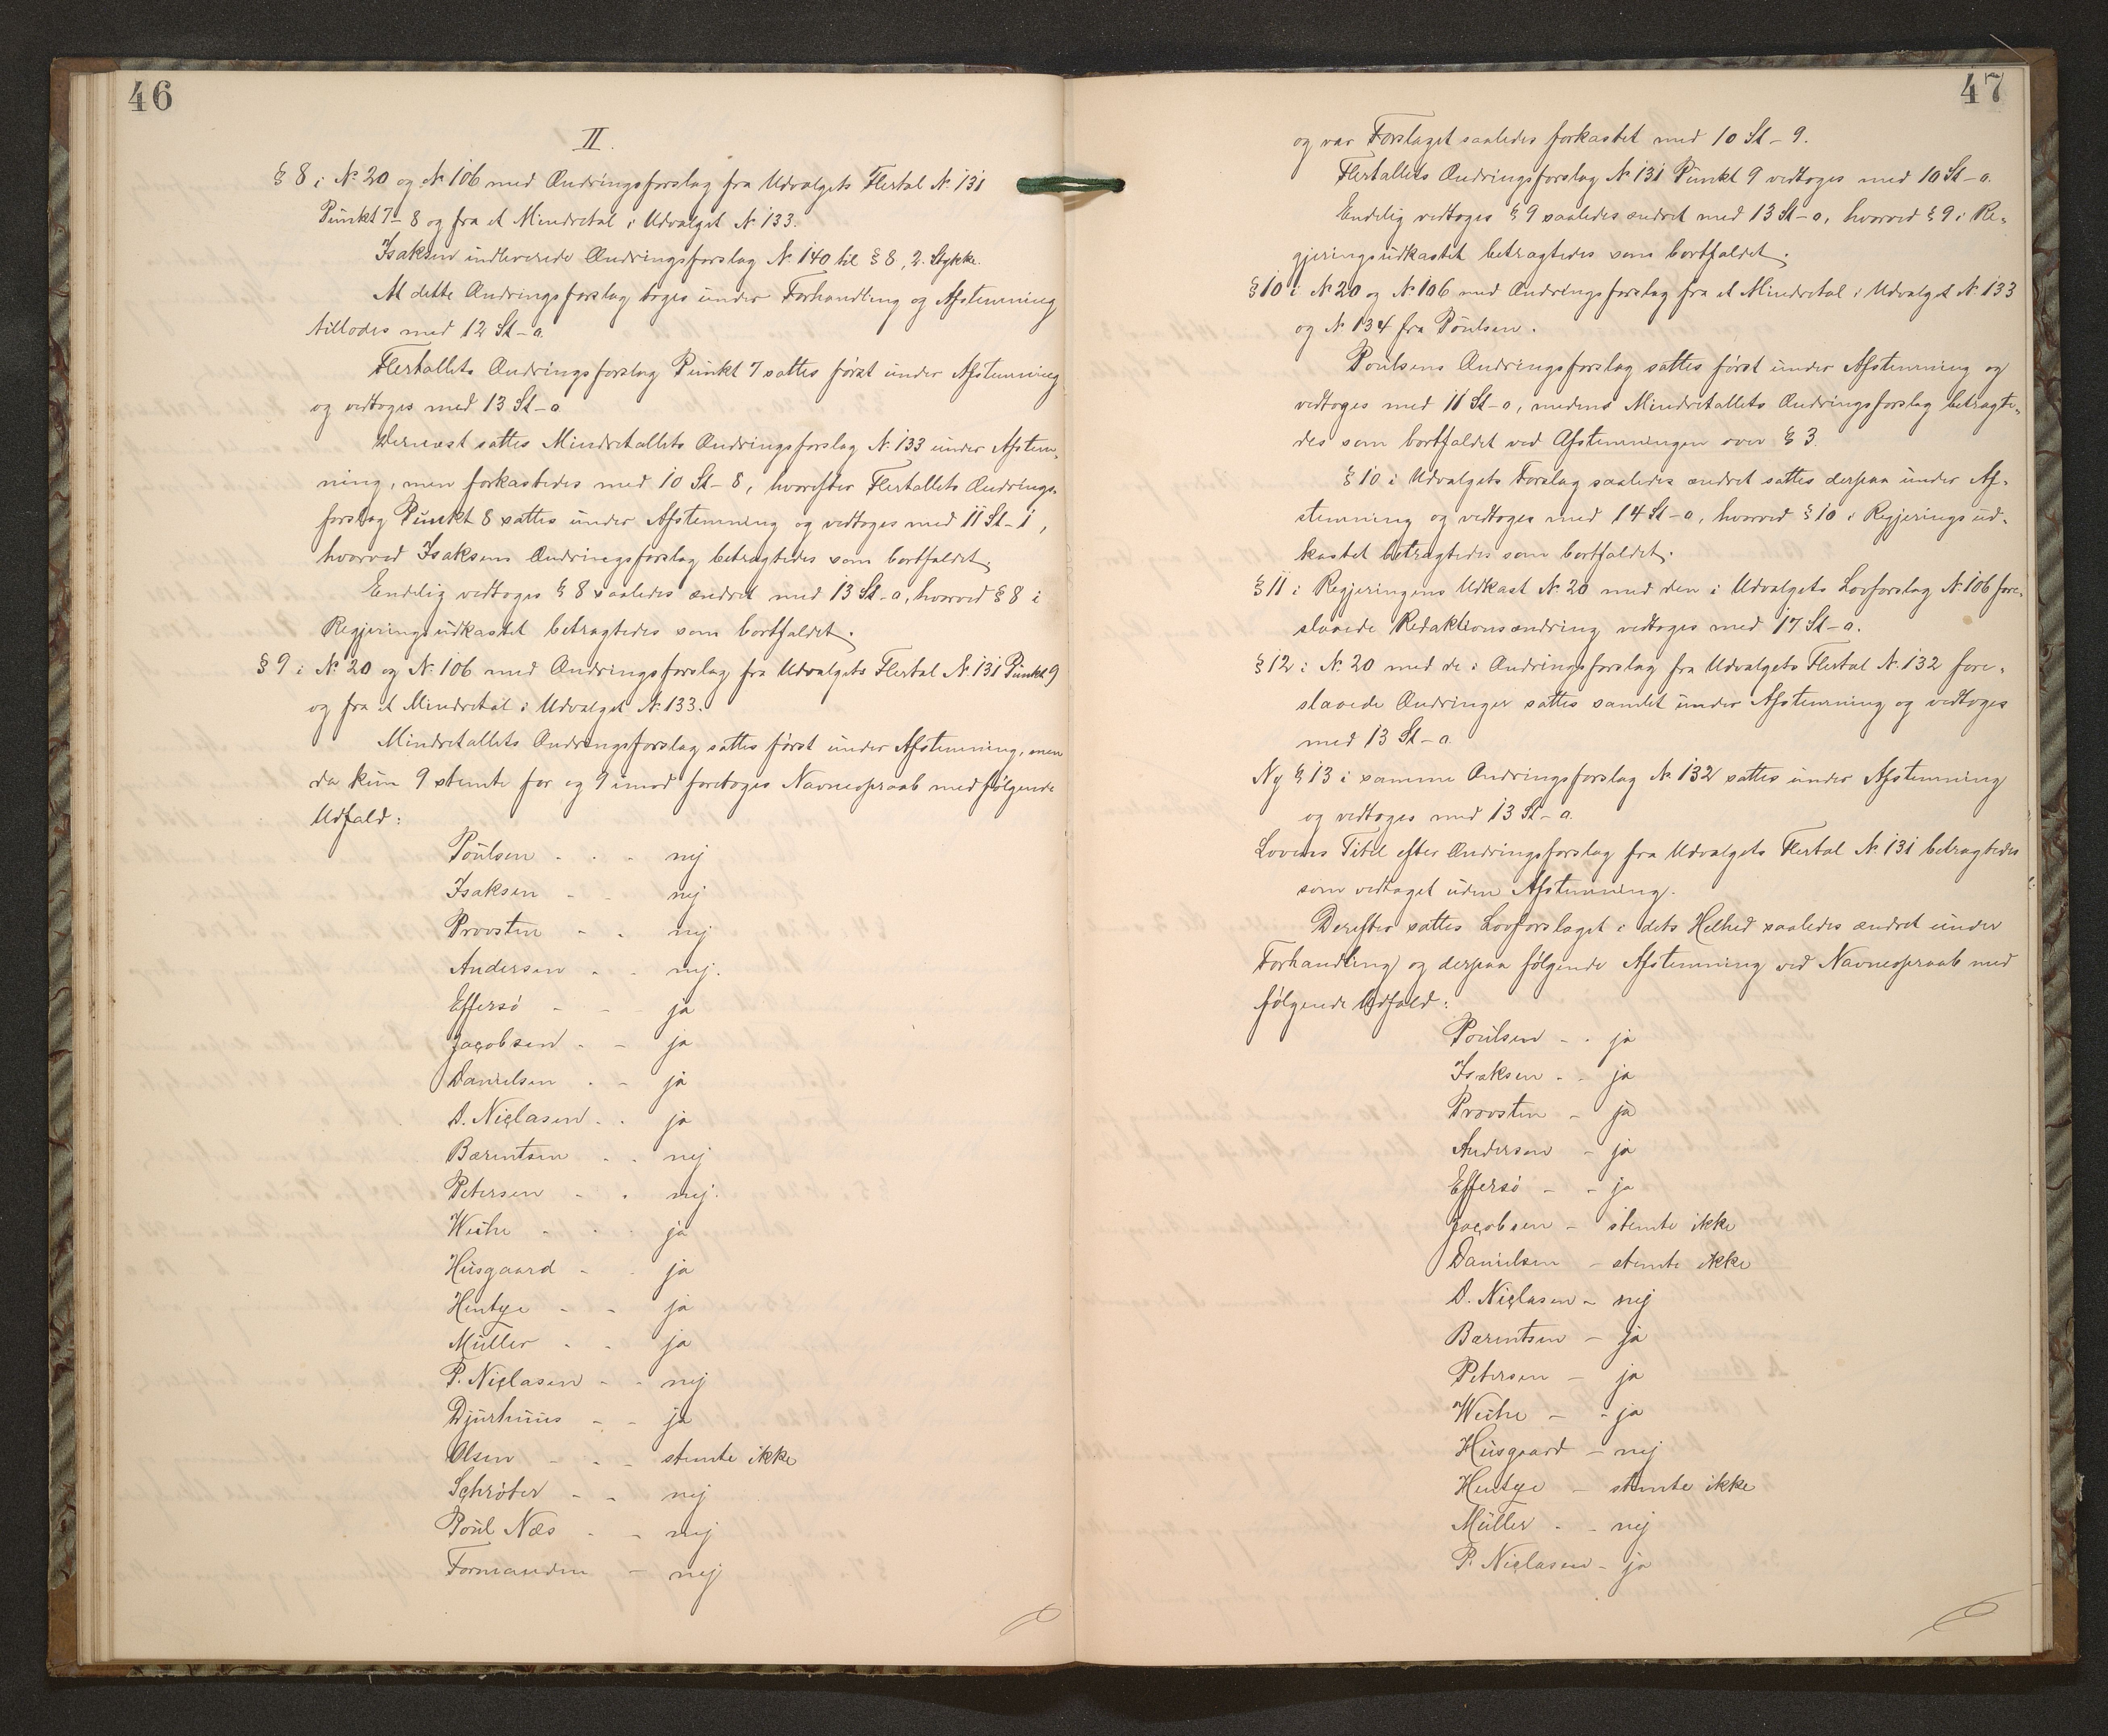 46
II.
§ 8 i № 20 og № 106 med Ændringsforslag fra Udvalgets Flertal № 131
Punkt 7-8 og fra et Mindretal i Udvalget № 133.
Isaksen indleverede Ændringsforslag № 140 til § 8, 2. Stykke.
At dette Ændringsforslag toges under Forhandling og Afstemning
tillodes med 12 St - o.
Flertallets Ændringsforslag Punkt 7 sattes først under Afstemning
og vedtoges med 13 St - o
Dernæst sattes Mindretallets Ændringsforslag № 133 under Afstem-
ning, men forkastedes med 10 St - 8, hvorefter Flertallets Ændrings-
forslag Punkt 8 sattes under Afstemning og vedtoges med 11 St - 1,
hvorved Isaksens Ændringsforslag betragtedes som bortfaldet.
Endelig vedtoges § 8 saaledes ændret med 13 St - o, hvorved § 8 i
Regjeringsudkastet betragtedes som bortfaldet.
§ 9 i № 20 og № 106 med Ændringsforslag fra Udvalgets Flertal № 131 Punkt 9
og fra et Mindretal i Udvalget № 133.
Mindretallets Ændringsforslag sattes først under Afstemning, men
da kun 9 stemte for og 9 imod foretoges Navneopraab med følgende
Udfald:
Poulsen - - - nej
Isaksen - - nej
Provsten - - nej
Andersen - - nej.
Effersö - - ja
Jacobsen - - ja
Danielsen - - ja
D. Niclasen - - ja
Bærentsen - - nej
Petersen - - nej.
Weihe - - - ja
Husgaard - - ja
Hentze - - ja
Müller - - ja
P. Niclasen - - nej
Djurhuus - - ja
Olsen - - - stemte ikke
Schröter - - nej
Poul Næs - - nej
Formanden - nej
47
og var Forslaget saaledes forkastet med 10 St - 9.
Flertallets Ændringsforslag № 131 Punkt 9 vedtoges med 10 St - o.
Endelig vedtoges § 9 saaledes ændret med 13 St - o, hvorved § 9 i Re-
gjeringsudkastet betragtedes som bortfaldet.
§ 10 i № 20 og № 106 med Ændringsforslag fra et Mindretal i Udvalget № 133
og № 134 fra Poulsen.
Poulsens Ændringsforslag sattes først under Afstemning og
vedtoges med 11 St - o, medens Mindretallets Ændringsforslag betragte-
des som bortfaldet ved Afstemningen over § 3.
§ 10 i Udvalgets Forslag saaledes ændret sattes derpaa under Af-
stemning og vedtoges med 14 St - o, hvorved § 10 i Regjeringsud-
kastet betragtedes som bortfaldet.
§ 11 i Regjeringens Udkast № 20 med den i Udvalgets Lovforslag № 106 fore-
slaaede Redaktionsændring vedtoges med 17 St - o.
§ 12 i № 20 med de i Ændringsforslag fra Udvalgets Flertal № 132 fore-
slaaede Ændringer sattes samlet under Afstemning og vedtoges
med 13 St - o.
Ny § 13 i samme Ændringsforslag № 132 sattes under Afstemning
og vedtoges med 13 St - o.
Lovens Titel efter Ændringsforslag fra Udvalgets Flertal № 131 betragtedes
som vedtaget uden Afstemning.
Derefter sattes Lovforslaget i dets Helhed saaledes ændret under
Forhandling og derpaa følgende Afstemning ved Navneopraab med
følgende Udfald:
Poulsen - - ja
Isaksen - - ja
Provsten - ja
Andersen - ja
Effersö - - ja
Jacobsen - stemte ikke
Danielsen - stemte ikke
D. Niclasen - nej
Bærentsen - ja
Petersen - ja
Weihe - - ja
Husgaard - nej
Hentze - stemte ikke
Müller - - nej
P. Niclasen - ja